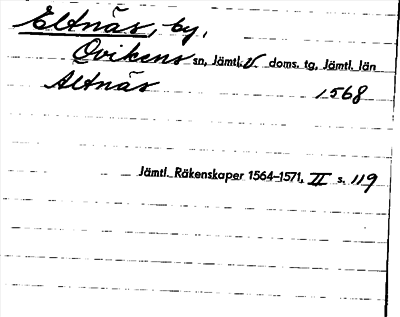 Eltnäs, by,
Ovikens sn, Jämtl. V. doms. tg, Jämtl. län
Altnäs 1568
Jämtl. Räkenskaper 1564–1571, II s. 119